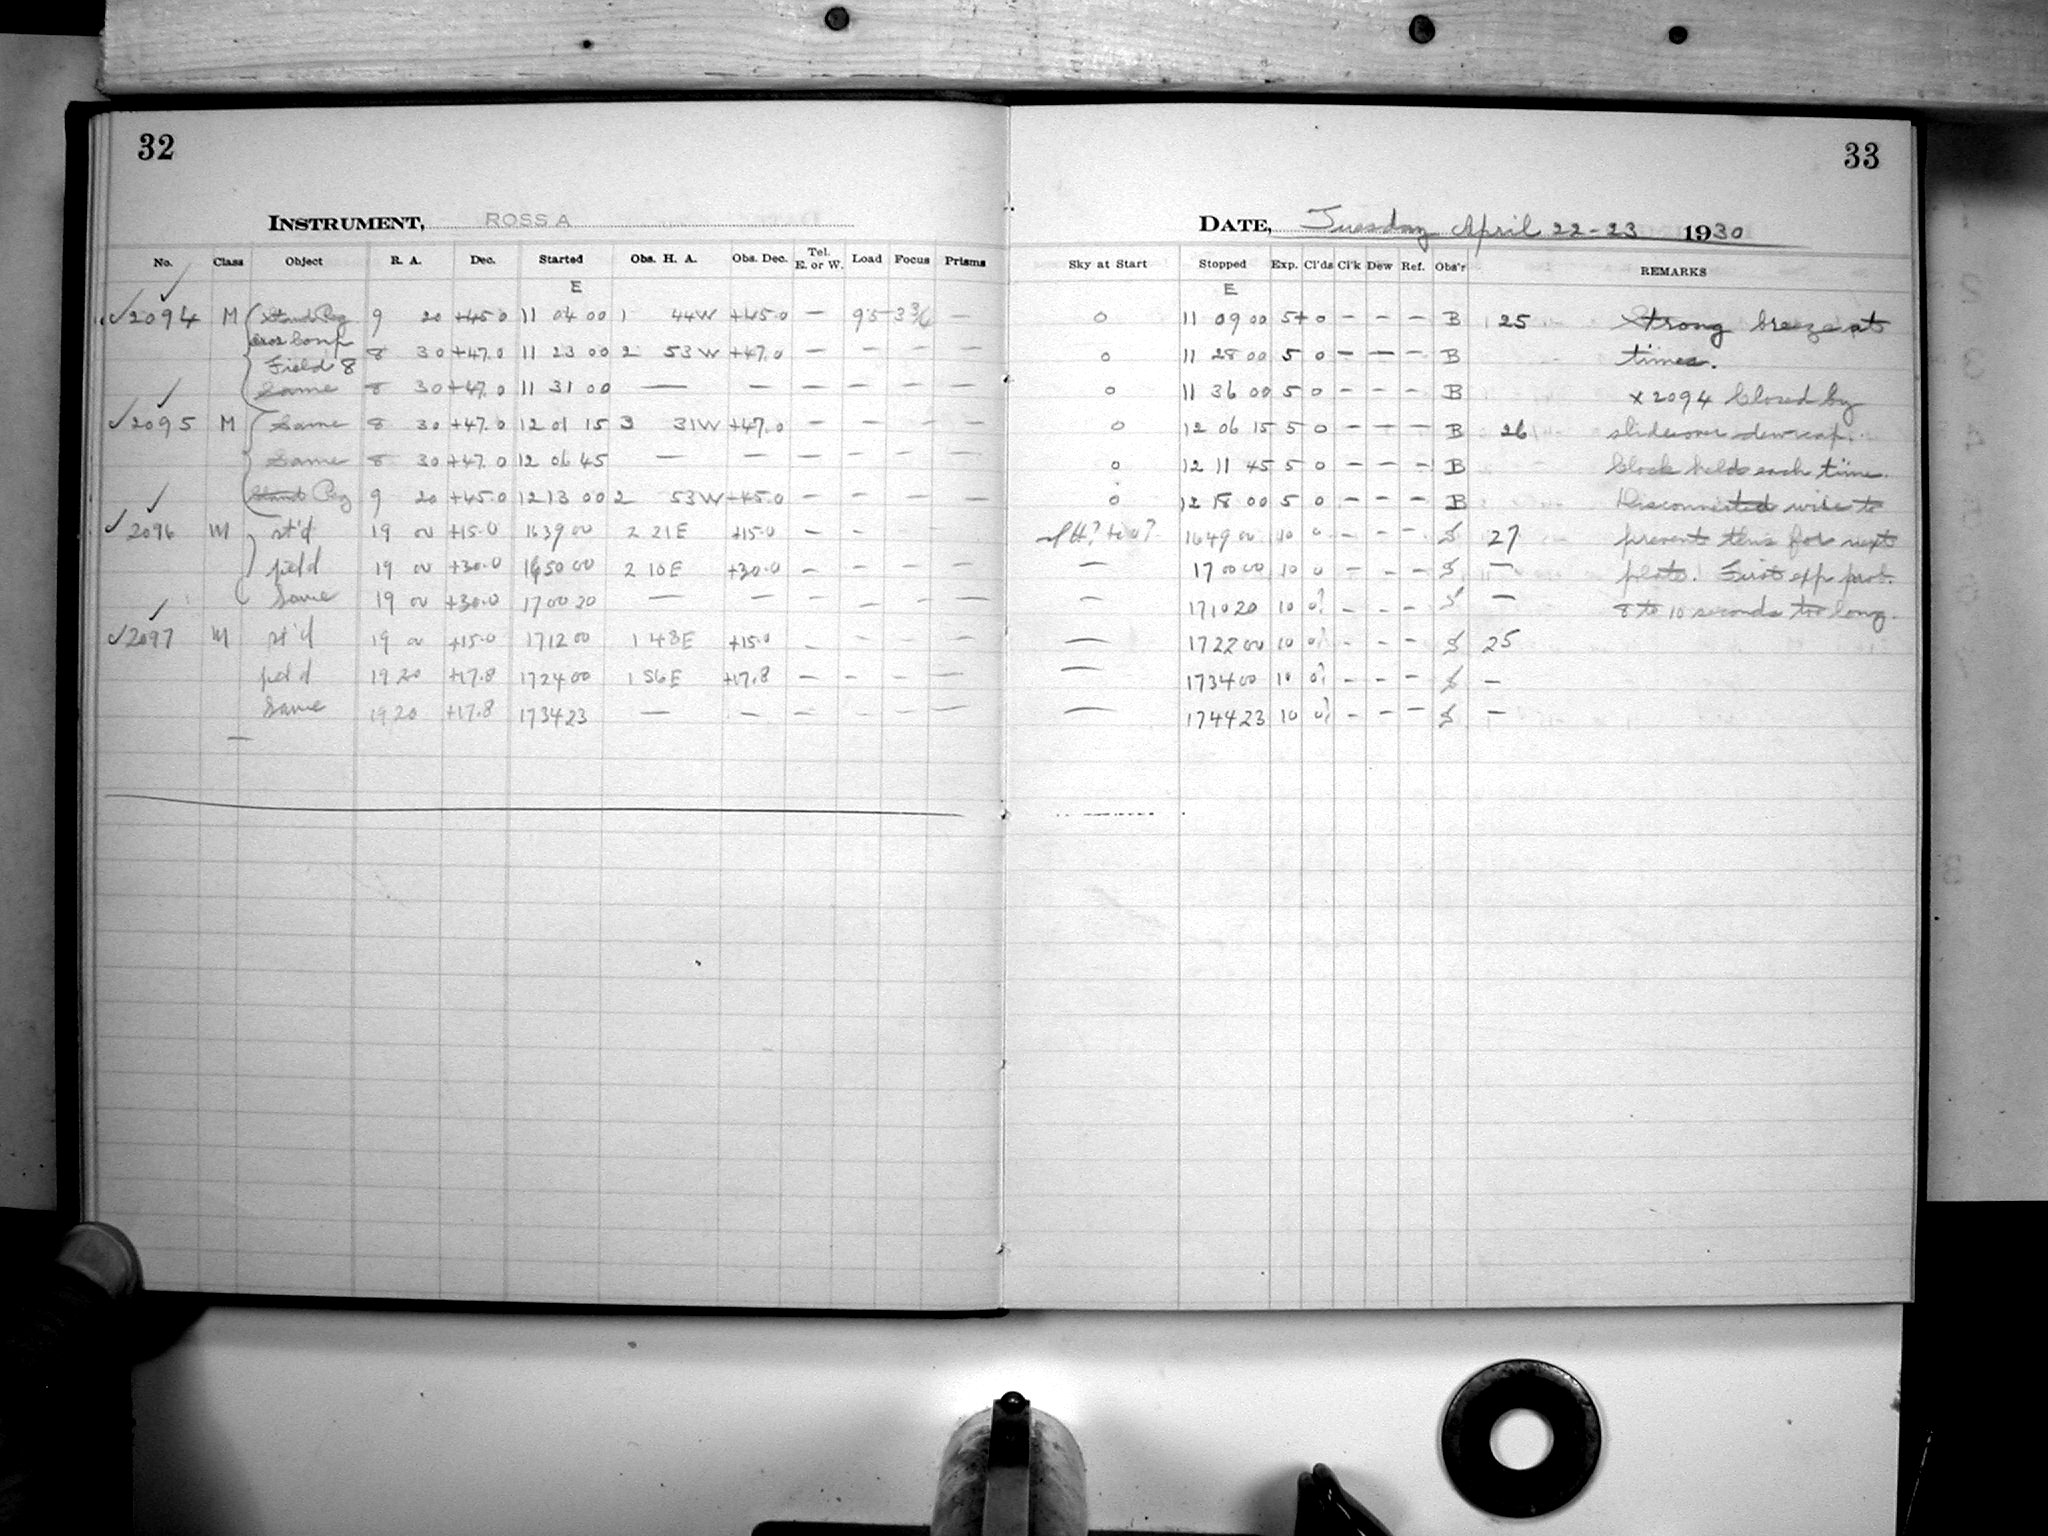 32
33
INSTRUMENT, ROSS A
DATE, Tuesday April 22-23 1930
No. Class Object R. A. Dec. Started Obs. H. A. Obs. Dec. Tel. E. or W. Load Focus Prisms Sky at Start Stopped Exp. Cl'ds Cl'k Dew Ref. Obs'r REMARKS
E E
✓2094 M 9 20 +45.0 11 04 00 1 44W +45.0 — 95 — 0 11 09 00 5+ 0 – – – B 25 Strong breeze at
Comp
Field 8 8 30 +47.0 11 23 00 2 53W +47.0 — — — — 0 11 28 00 5 0 – – – B times.
Same 8 30 +47.0 11 31 00 — — — — — — 0 11 36 00 5 0 – – – B x 2094 Closed by
✓2095 M Same 8 30 +47.0 12 01 15 3 31W +47.0 — — — — 0 12 06 15 5 0 – – – B 26 slide over dewcap.
Same 8 30 +47.0 12 06 45 — — — — — — 0 12 11 45 5 0 – – – B Clock held each time.
9 20 +45.0 12 13 00 2 53W +45.0 — — — — 0 12 18 00 5 0 – – – B Disconnected wire to
✓2096 M st'd 19 00 +15.0 16 39 00 2 21E +15.0 — — — — 16 49 00 10 0 – – – S 27 prevent this for next
field 19 00 +30.0 16 50 00 2 10E +30.0 — — — — — 17 00 00 10 0 – – – S — plate. First exp prob.
Same 19 00 +30.0 17 00 20 — — — — — — — 17 10 20 10 0? – – – S — 8 to 10 seconds too long.
✓2097 M st'd 19 00 +15.0 17 12 00 1 43E +15.0 — — — — — 17 22 00 10 0? – – – S 25
field 19 20 +17.8 17 24 00 1 56E +17.8 — — — — — 17 34 00 10 0? – – – S —
Same 19 20 +17.8 17 34 23 — — — — — — — 17 44 23 10 0? – – – S —